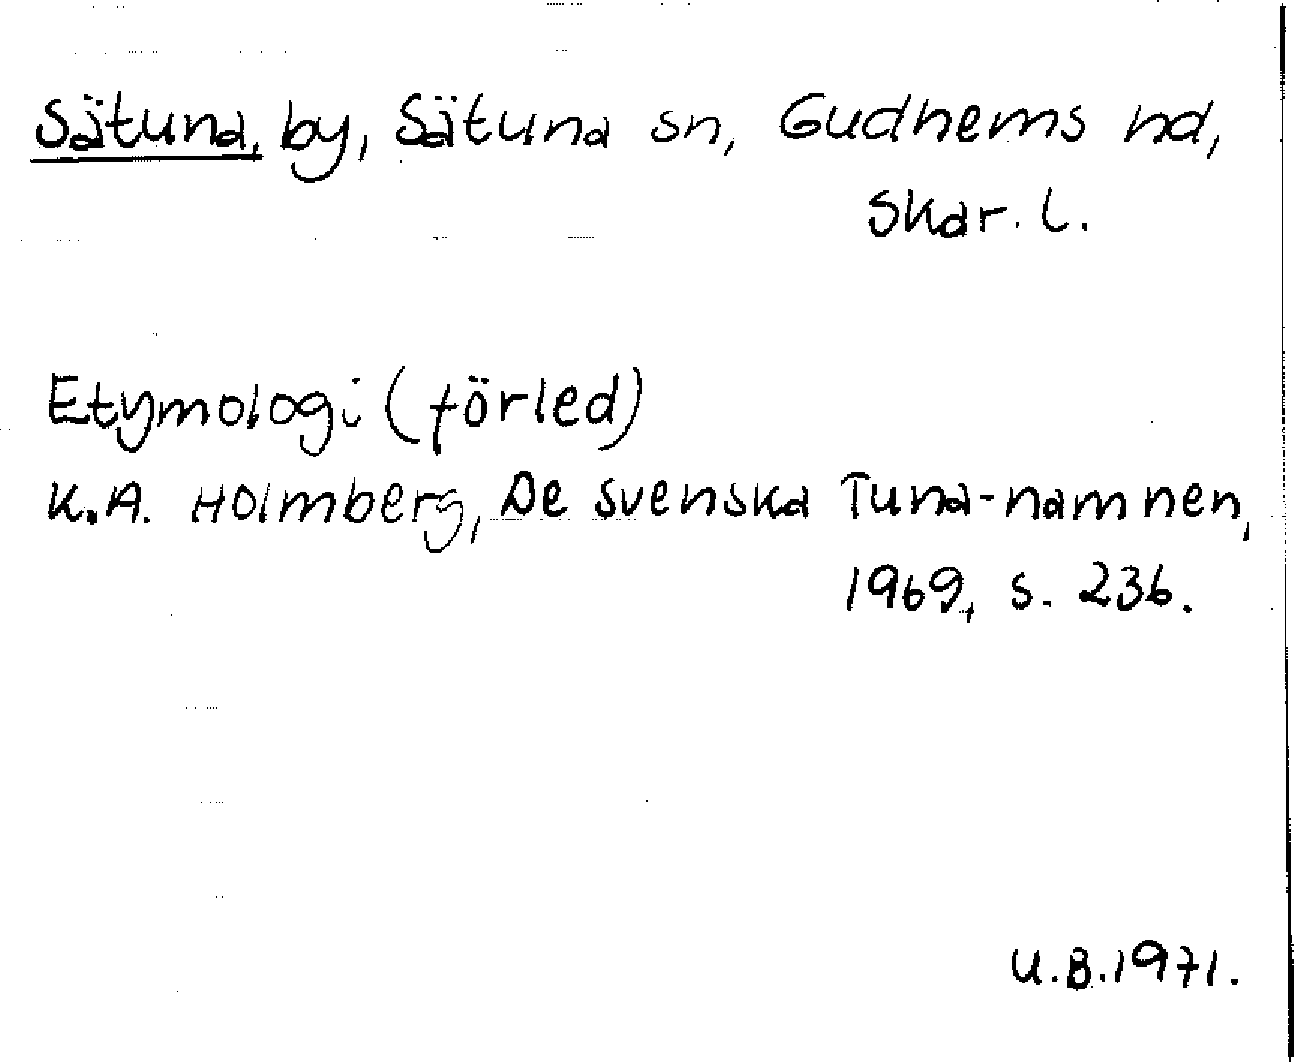 Sätuna, by, Sätuna sn, Gudhems hd,
Skar. l.
Etymologi (förled)
K.A. Holmberg, De svenska Tuna-namnen,
1969, s. 236.
U.B.1971.